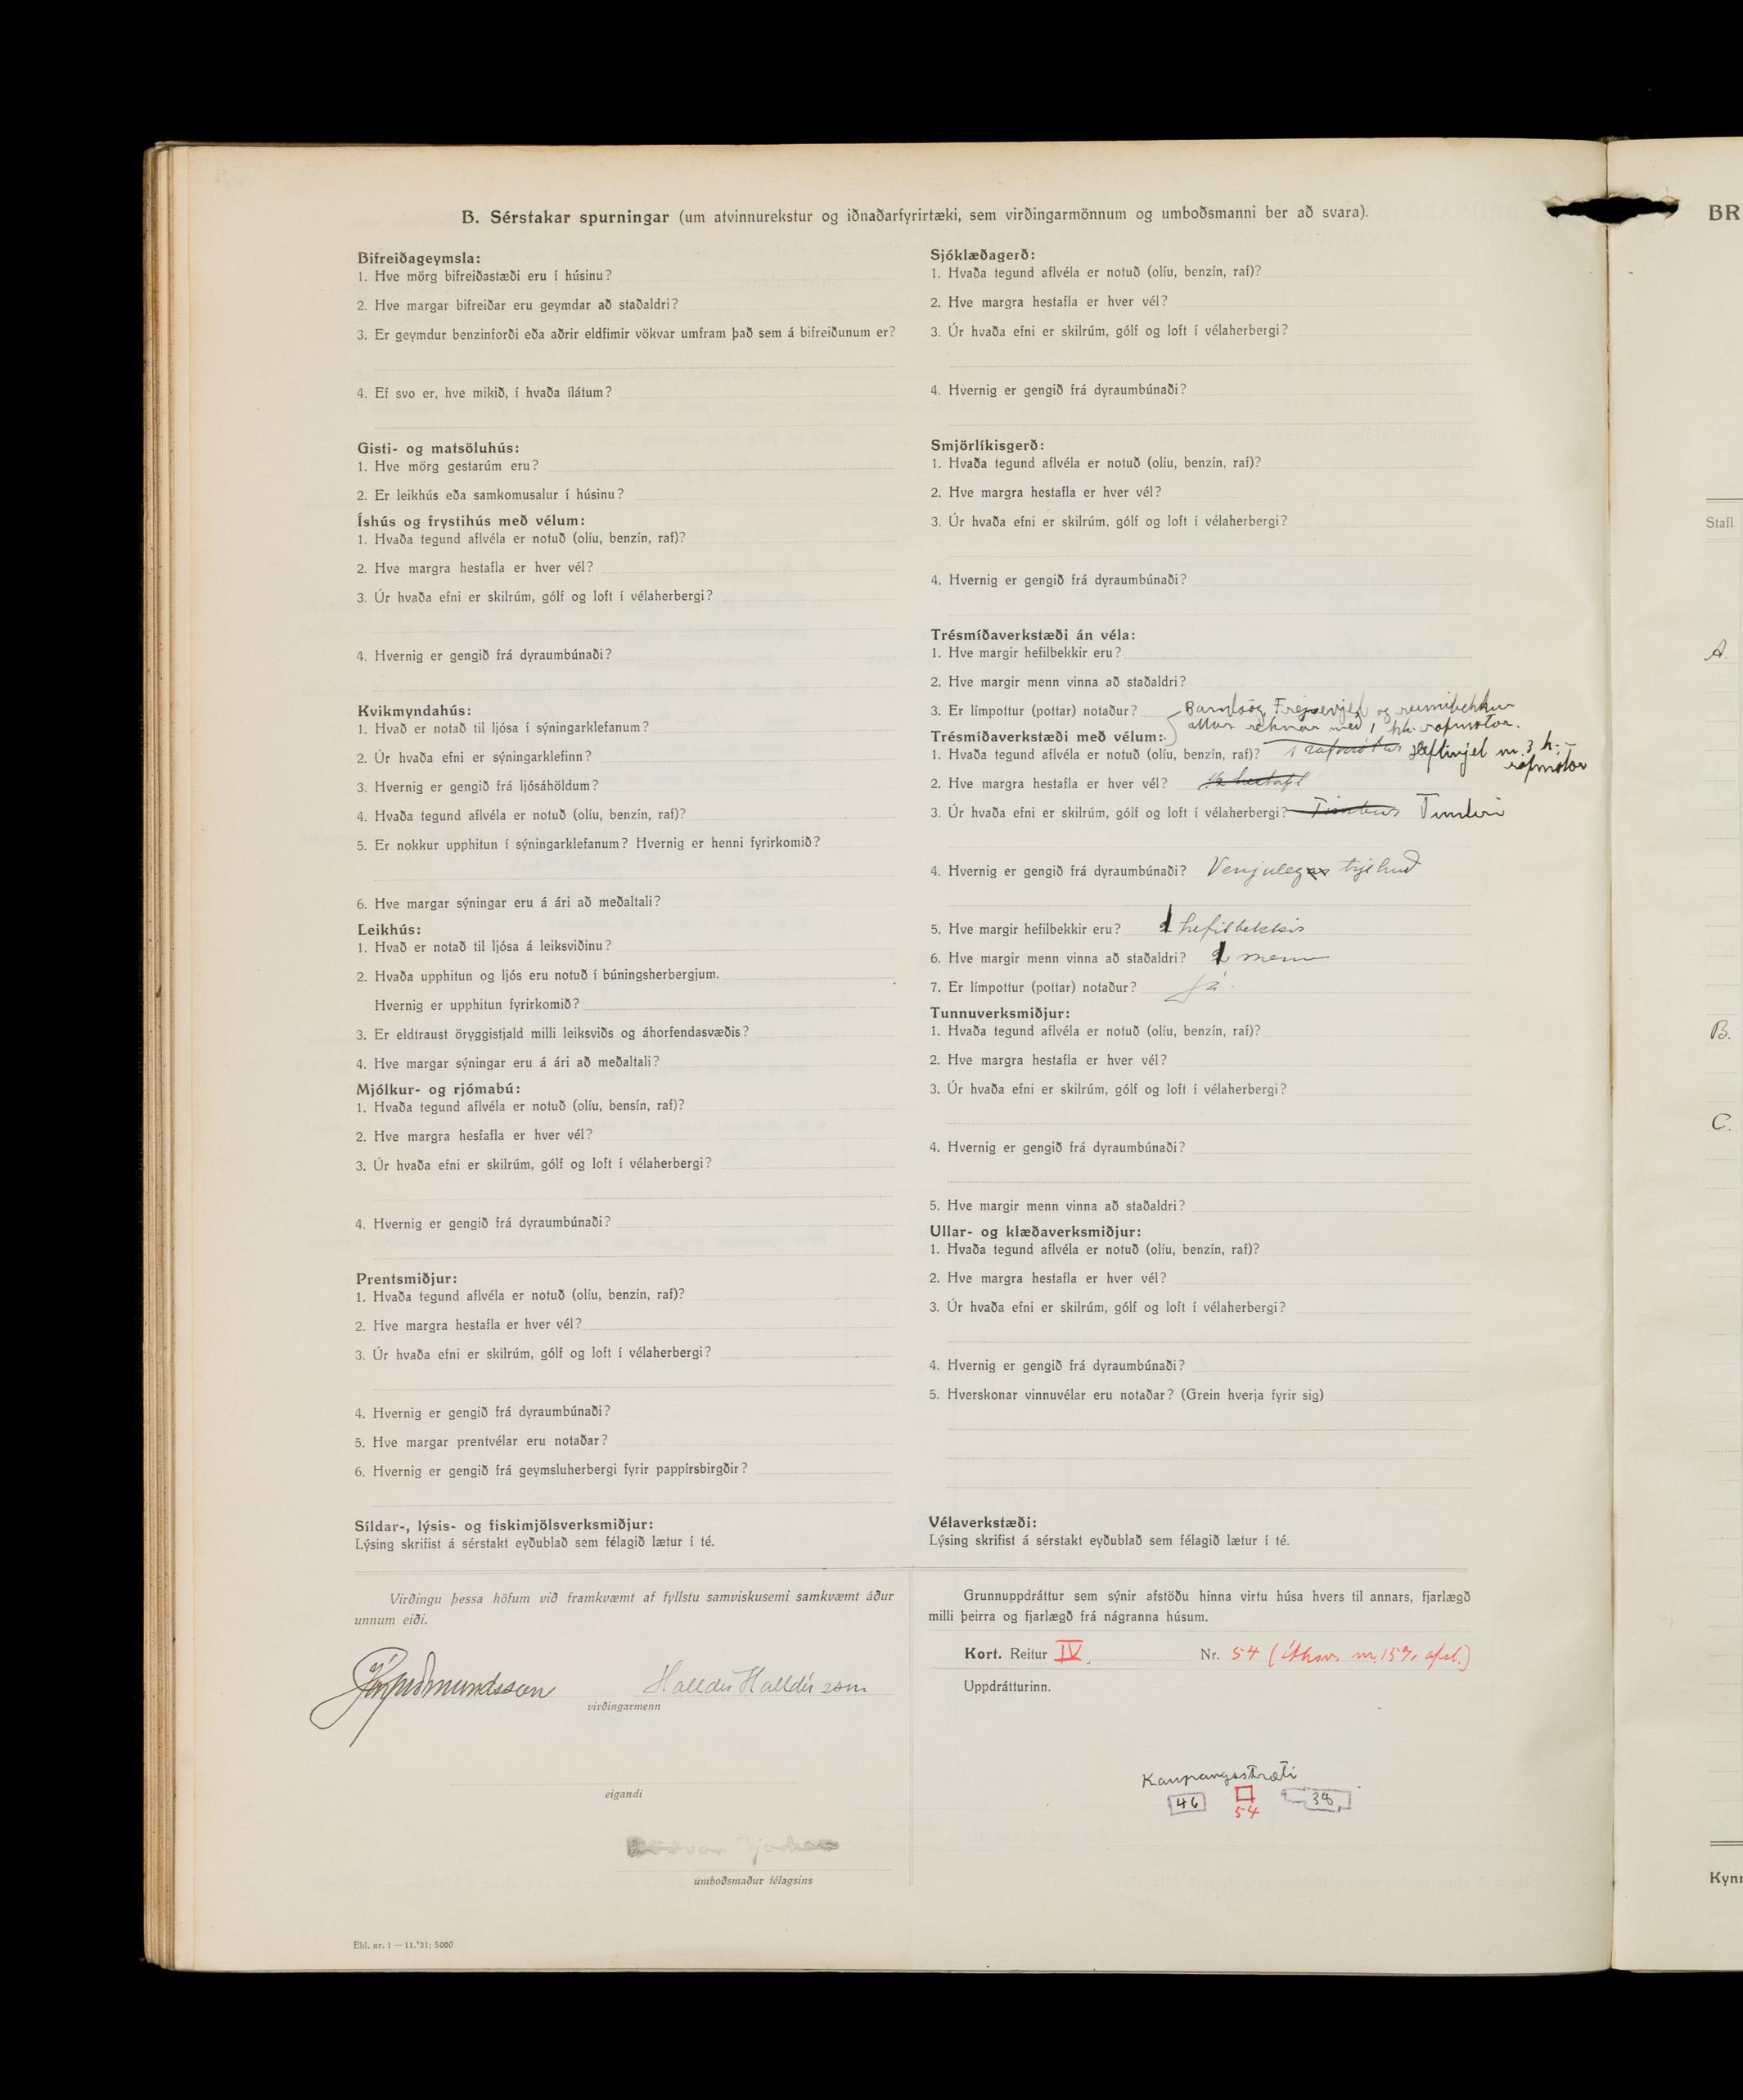 B. Sérstakar spurningar (um atvinnurekstur og iðnaðarfyrirtæki, sem virðingarmönnum og umboðsmanni ber að svara).
Bifreiðageymsla:
1. Hve mörg bifreiðastæði eru í húsinu?
2. Hve margar bifreiðar eru geymdar að staðaldri?
3. Er geymdur benzínforði eða aðrir eldfimir vökvar umfram það sem á bifreiðunum er?
4. Ef svo er, hve mikið, í hvaða ílátum?
Gisti- og matsöluhús:
1. Hve mörg gestarúm eru?
2. Er leikhús eða samkomusalur í húsinu?
Íshús og frystihús með vélum:
1. Hvaða tegund aflvéla er notuð (olíu, benzín, raf)?
2. Hve margra hestafla er hver vél?
3. Úr hvaða efni er skilrúm, gólf og loft í vélaherbergi?
4. Hvernig er gengið frá dyraumbúnaði?
Kvikmyndahús:
1. Hvað er notað til ljósa í sýningarklefanum?
2. Úr hvaða efni er sýningarklefinn?
3. Hvernig er gengið frá ljósáhöldum?
4. Hvaða tegund aflvéla er notuð (olíu, benzín, raf)?
5. Er nokkur upphitun í sýningarklefanum? Hvernig er henni fyrirkomið?
6. Hve margar sýningar eru á ári að meðaltali?
Leikhús:
1. Hvað er notað til ljósa á leiksviðinu?
2. Hvaða upphitun og ljós eru notuð í búningsherbergjum.
Hvernig er upphitun fyrirkomið?
3. Er eldtraust öryggistjald milli leiksviðs og áhorfendasvæðis?
4. Hve margar sýningar eru á ári að meðaltali?
Mjólkur- og rjómabú:
1. Hvaða tegund aflvéla er notuð (olíu, bensín, raf)?
2. Hve margra hesfafla er hver vél?
3. Úr hvaða efni er skilrúm, gólf og loft í vélaherbergi?
4. Hvernig er gengið frá dyraumbúnaði?
Prentsmiðjur:
1. Hvaða tegund aflvéla er notuð (olíu, benzín, raf)?
2. Hve margra hestafla er hver vél?
3. Úr hvaða efni er skilrúm, gólf og loft í vélaherbergi?
4. Hvernig er gengið frá dyraumbúnaði?
5. Hve margar prentvélar eru notaðar?
6. Hvernig er gengið frá geymsluherbergi fyrir pappírsbirgðir?
Síldar-, lýsis- og fiskimjölsverksmiðjur:
Lýsing skrifist á sérstakt eyðublað sem félagið lætur í té.
Sjóklæðagerð:
1. Hvaða tegund aflvéla er notuð (olíu, benzín, raf)?
2. Hve margra hestafla er hver vél?
3. Úr hvaða efni er skilrúm, gólf og loft í vélaherbergi?
4. Hvernig er gengið frá dyraumbúnaði?
Smjörlíkisgerð:
1. Hvaða tegund aflvéla er notuð (olíu, benzín, raf)?
2. Hve margra hestafla er hver vél?
3. Úr hvaða efni er skilrúm, gólf og loft í vélaherbergi?
4. Hvernig er gengið frá dyraumbúnaði?
Trésmíðaverkstæði án véla:
1. Hve margir hefilbekkir eru?
2. Hve margir menn vinna að staðaldri?
3. Er límpottur (pottar) notaður? Bandsög, Fræsevjel og rennibekkur
allar reknar með 1 hk. rafmótor.
Trésmíðaverkstæði með vélum:
1. Hvaða tegund aflvéla er notuð (olíu, benzín, raf)? 1 rafmótor Heflivjel m. 3 h.
rafmótor
2. Hve margra hestafla er hver vél? ½ hestafl
3. Úr hvaða efni er skilrúm, gólf og loft í vélaherbergi? Timbur Timbri
4. Hvernig er gengið frá dyraumbúnaði? Venjuleg trjehurð
5. Hve margir hefilbekkir eru? 1 hefilbekkir
6. Hve margir menn vinna að staðaldri? 1 menn
7. Er límpottur (pottar) notaður? Já
Tunnuverksmiðjur:
1. Hvaða tegund aflvéla er notuð (olíu, benzín, raf)?
2. Hve margra hestafla er hver vél?
3. Úr hvaða efni er skilrúm, gólf og loft í vélaherbergi?
4. Hvernig er gengið frá dyraumbúnaði?
5. Hve margir menn vinna að staðaldri?
Ullar- og klæðaverksmiðjur:
1. Hvaða tegund aflvéla er notuð (olíu, benzín, raf)?
2. Hve margra hestafla er hver vél?
3. Úr hvaða efni er skilrúm, gólf og loft í vélaherbergi?
4. Hvernig er gengið frá dyraumbúnaði?
5. Hverskonar vinnuvélar eru notaðar? (Grein hverja fyrir sig)
Vélaverkstæði:
Lýsing skrifist á sérstakt eyðublað sem félagið lætur í té.
Virðingu þessa höfum við framkvæmt af fyllstu samviskusemi samkvæmt áður
unnum eiði.
Guðmundsson Halldór Halldórsson
virðingarmenn
eigandi
umboðsmaður félagsins
Ebl. nr. 1 — 11.'31: 5000
Grunnuppdráttur sem sýnir afstöðu hinna virtu húsa hvers til annars, fjarlægð
milli þeirra og fjarlægð frá nágranna húsum.
Kort. Reitur IV. Nr. 54 (íthsv. m. 15% afsl.)
Uppdrátturinn.
Kaupangsstræti
46 54 38
BR
Stafl
A.
B.
C.
Kynn